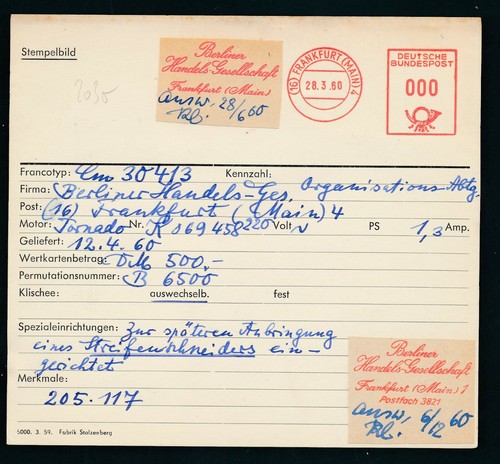 Stempelbild
2030
Berliner
Handels-Gesellschaft
Frankfurt (Main)
ausw. 28/6 60
Rb.
(16) FRANKFURT (MAIN) 4
28.3.60
DEUTSCHE
BUNDESPOST
000
Francotyp: Cm 30413 Kennzahl:
Firma: Berliner Handels-Ges. Organisations-Abtg.
Post: (16) Frankfurt (Main) 4
Motor: Tornado Nr. K 069458 220 Volt PS 1,3 Amp.
Geliefert: 12.4.60
Wertkartenbetrag: DM 500,-
Permutationsnummer: B 6500
Klischee: auswechselb. fest
Spezialeinrichtungen: Zur späteren Anbringung
eines Streifenschneiders ein-
gerichtet
Merkmale:
205.117
Berliner
Handels-Gesellschaft
Frankfurt (Main) 1
Postfach 3821
ausw. 6/12 60
Rb.
5000. 3. 59. Fabrik Stolzenberg